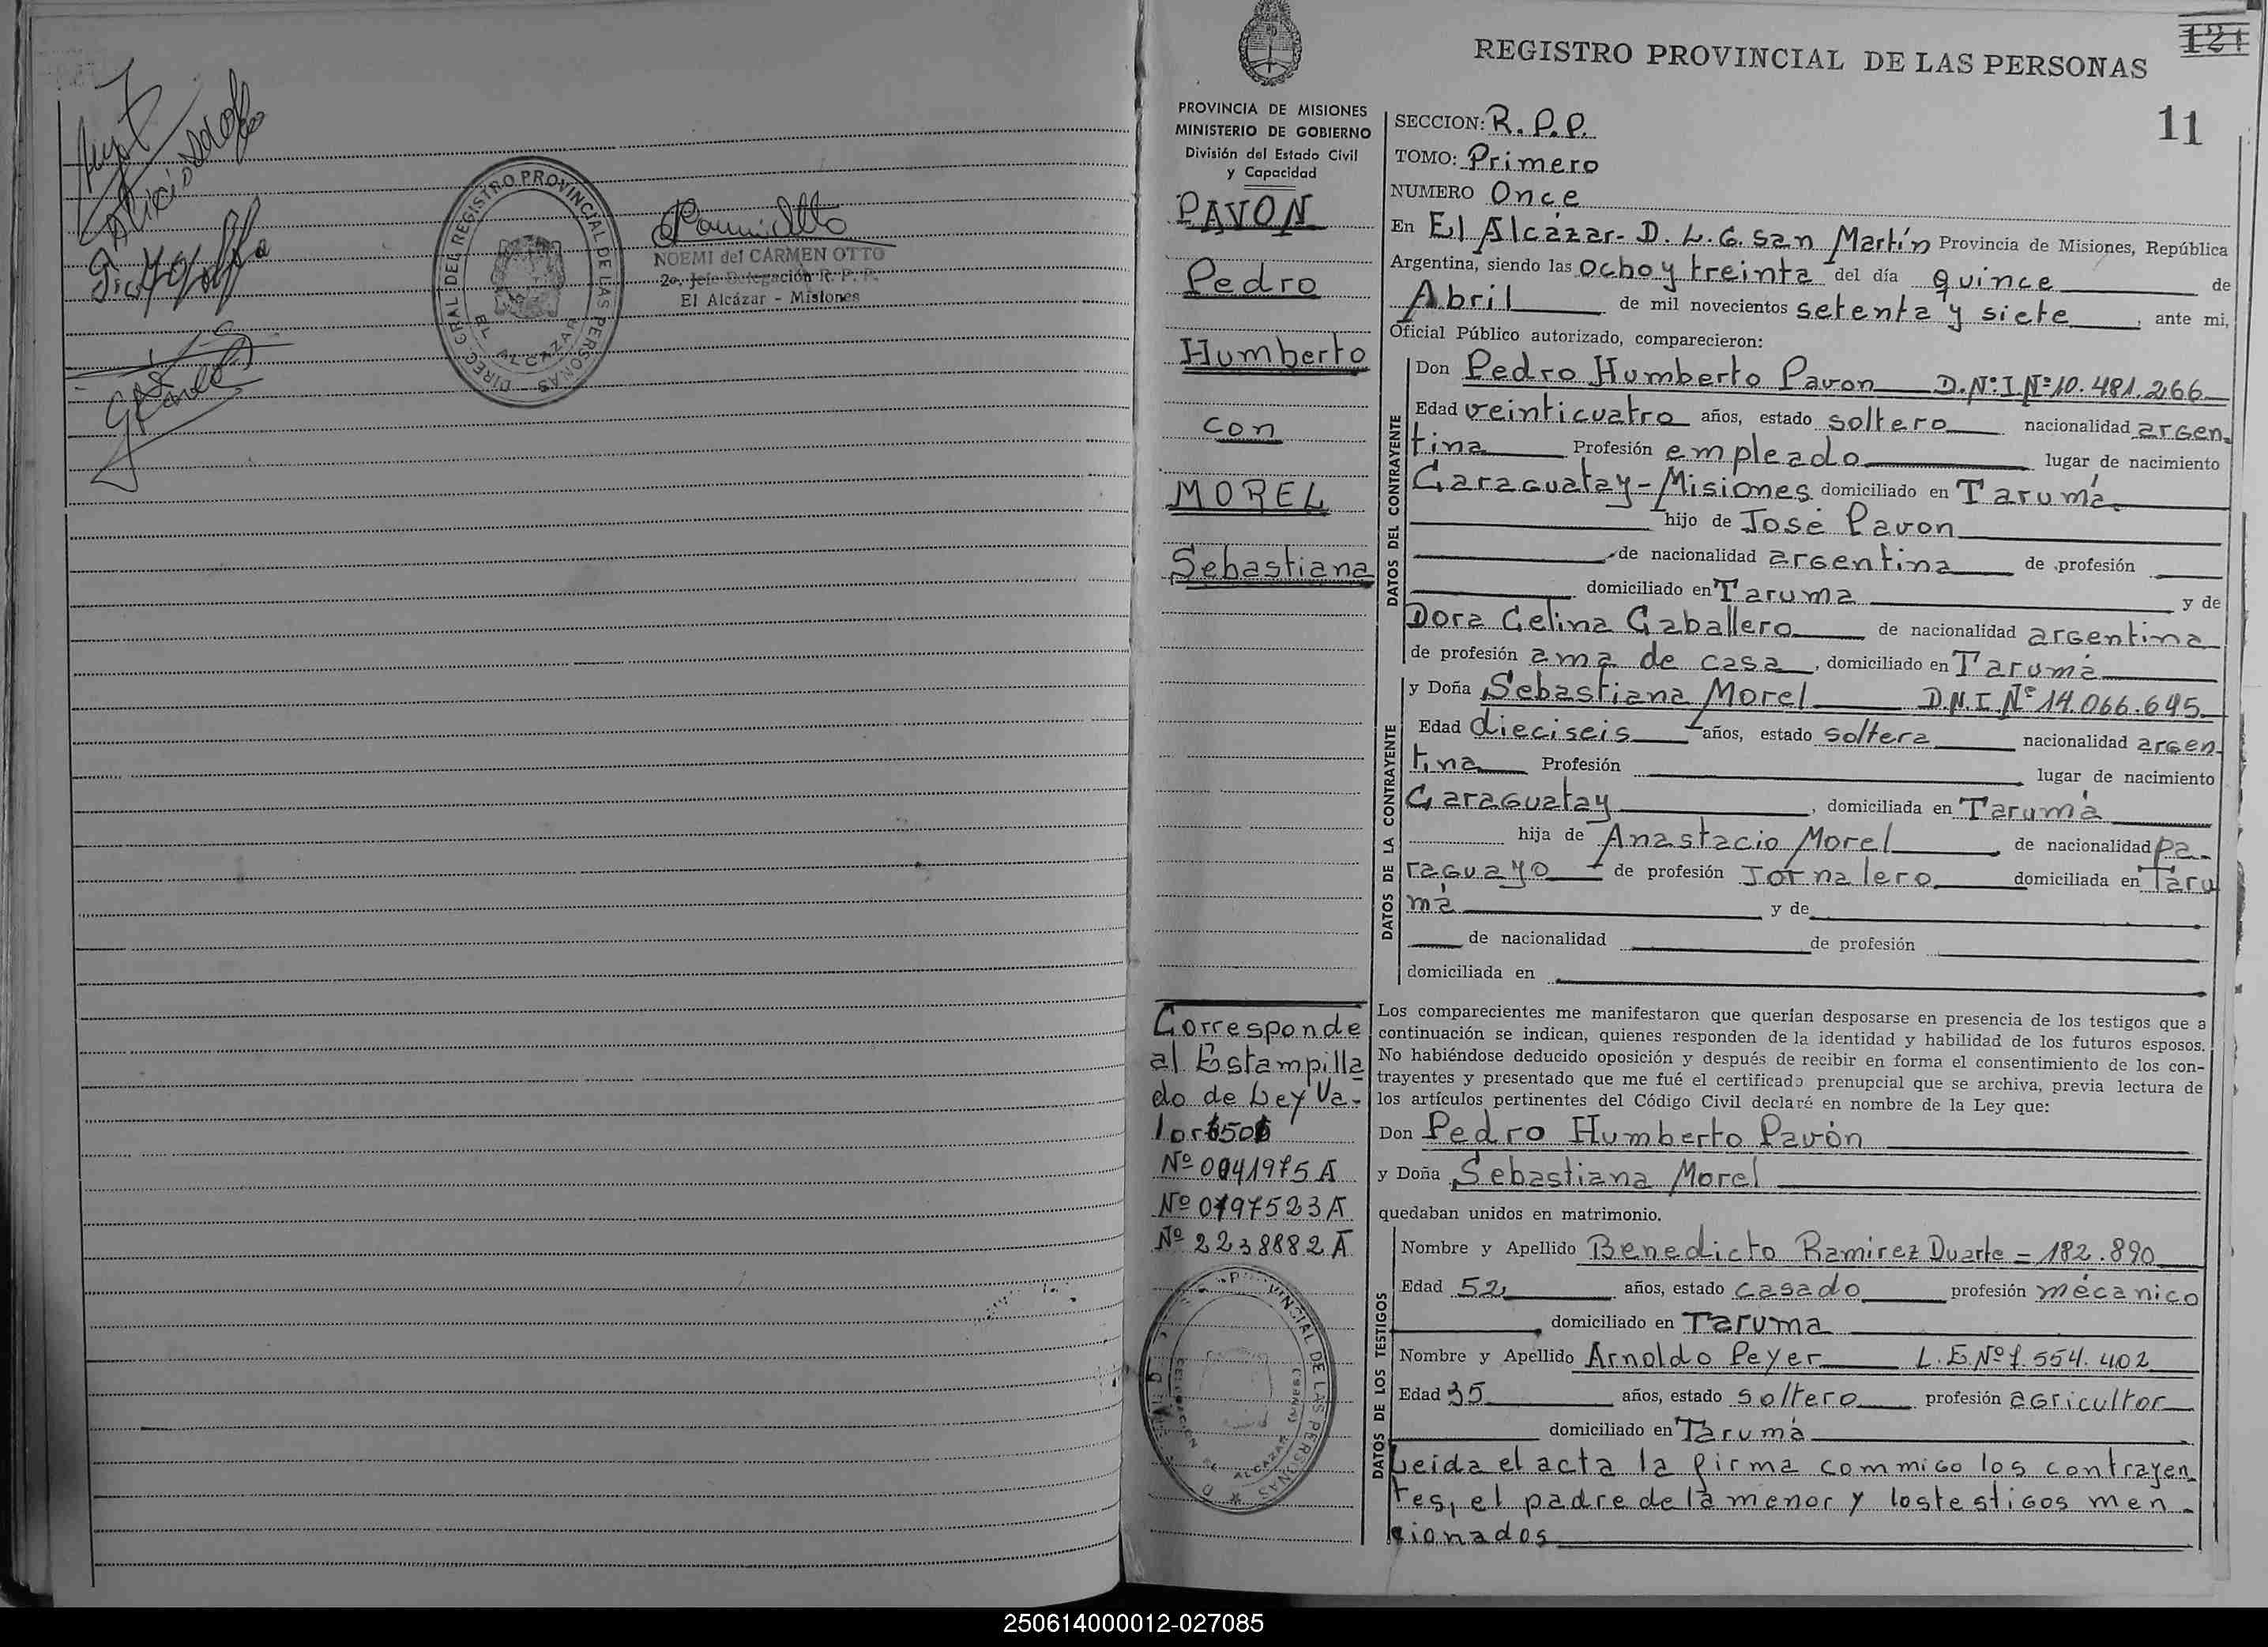 DIREC. GRAL DEL REGISTRO PROVINCIAL DE LAS PERSONAS
EL ALCAZAR
NOEMI del CARMEN OTTO
2o. Jefe Delegación R. P. P.
El Alcázar - Misiones
121
REGISTRO PROVINCIAL DE LAS PERSONAS
11
PROVINCIA DE MISIONES
MINISTERIO DE GOBIERNO
División del Estado Civil
y Capacidad
PAVON
Pedro
Humberto
con
MOREL
Sebastiana
Corresponde
al Estampilla
do de Ley Va-
lor $506
Nº 0041975 A
Nº 0797523 A
Nº 2238882 A
SECCION: R. P. P.
TOMO: Primero
NUMERO Once
En El Alcázar- D. L. G. San Martín Provincia de Misiones, República
Argentina, siendo las Ocho y treinta del día quince de
Abril de mil novecientos setenta y siete, ante mi,
Oficial Público autorizado, comparecieron:
DATOS DEL CONTRAYENTE
Don Pedro Humberto Pavon D.N.I Nº 10.481.266
Edad veinticuatro años, estado soltero nacionalidad argen-
tina Profesión empleado lugar de nacimiento
Caraguatay-Misiones domiciliado en Tarumá
hijo de José Pavon
de nacionalidad argentina de profesión
domiciliado en Taruma y de
Dora Celina Caballero de nacionalidad argentina
de profesión ama de casa, domiciliado en Tarumá
DATOS DE LA CONTRAYENTE
y Doña Sebastiana Morel D.N.I. Nº 14.066.645
Edad dieciseis años, estado soltera nacionalidad argen-
tina Profesión lugar de nacimiento
Caraguatay, domiciliada en Tarumá
hija de Anastacio Morel de nacionalidad pa-
raguayo de profesión Jornalero domiciliada en Taru
má y de
de nacionalidad de profesión
domiciliada en
Los comparecientes me manifestaron que querían desposarse en presencia de los testigos que a
continuación se indican, quienes responden de la identidad y habilidad de los futuros esposos.
No habiéndose deducido oposición y después de recibir en forma el consentimiento de los con-
trayentes y presentado que me fué el certificado prenupcial que se archiva, previa lectura de
los artículos pertinentes del Código Civil declaré en nombre de la Ley que:
Don Pedro Humberto Pavón
y Doña Sebastiana Morel
quedaban unidos en matrimonio.
DATOS DE LOS TESTIGOS
Nombre y Apellido Benedicto Ramirez Duarte = 182.890
Edad 52, años, estado casado profesión mécanico
domiciliado en Taruma
Nombre y Apellido Arnoldo Peyer L.E.Nº 7.554.402
Edad 35 años, estado soltero profesión agricultor
domiciliado en Tarumá
Leida el acta la firma commigo los contrayen
tes, el padre de la menor y los testigos men-
cionados
250614000012-027085